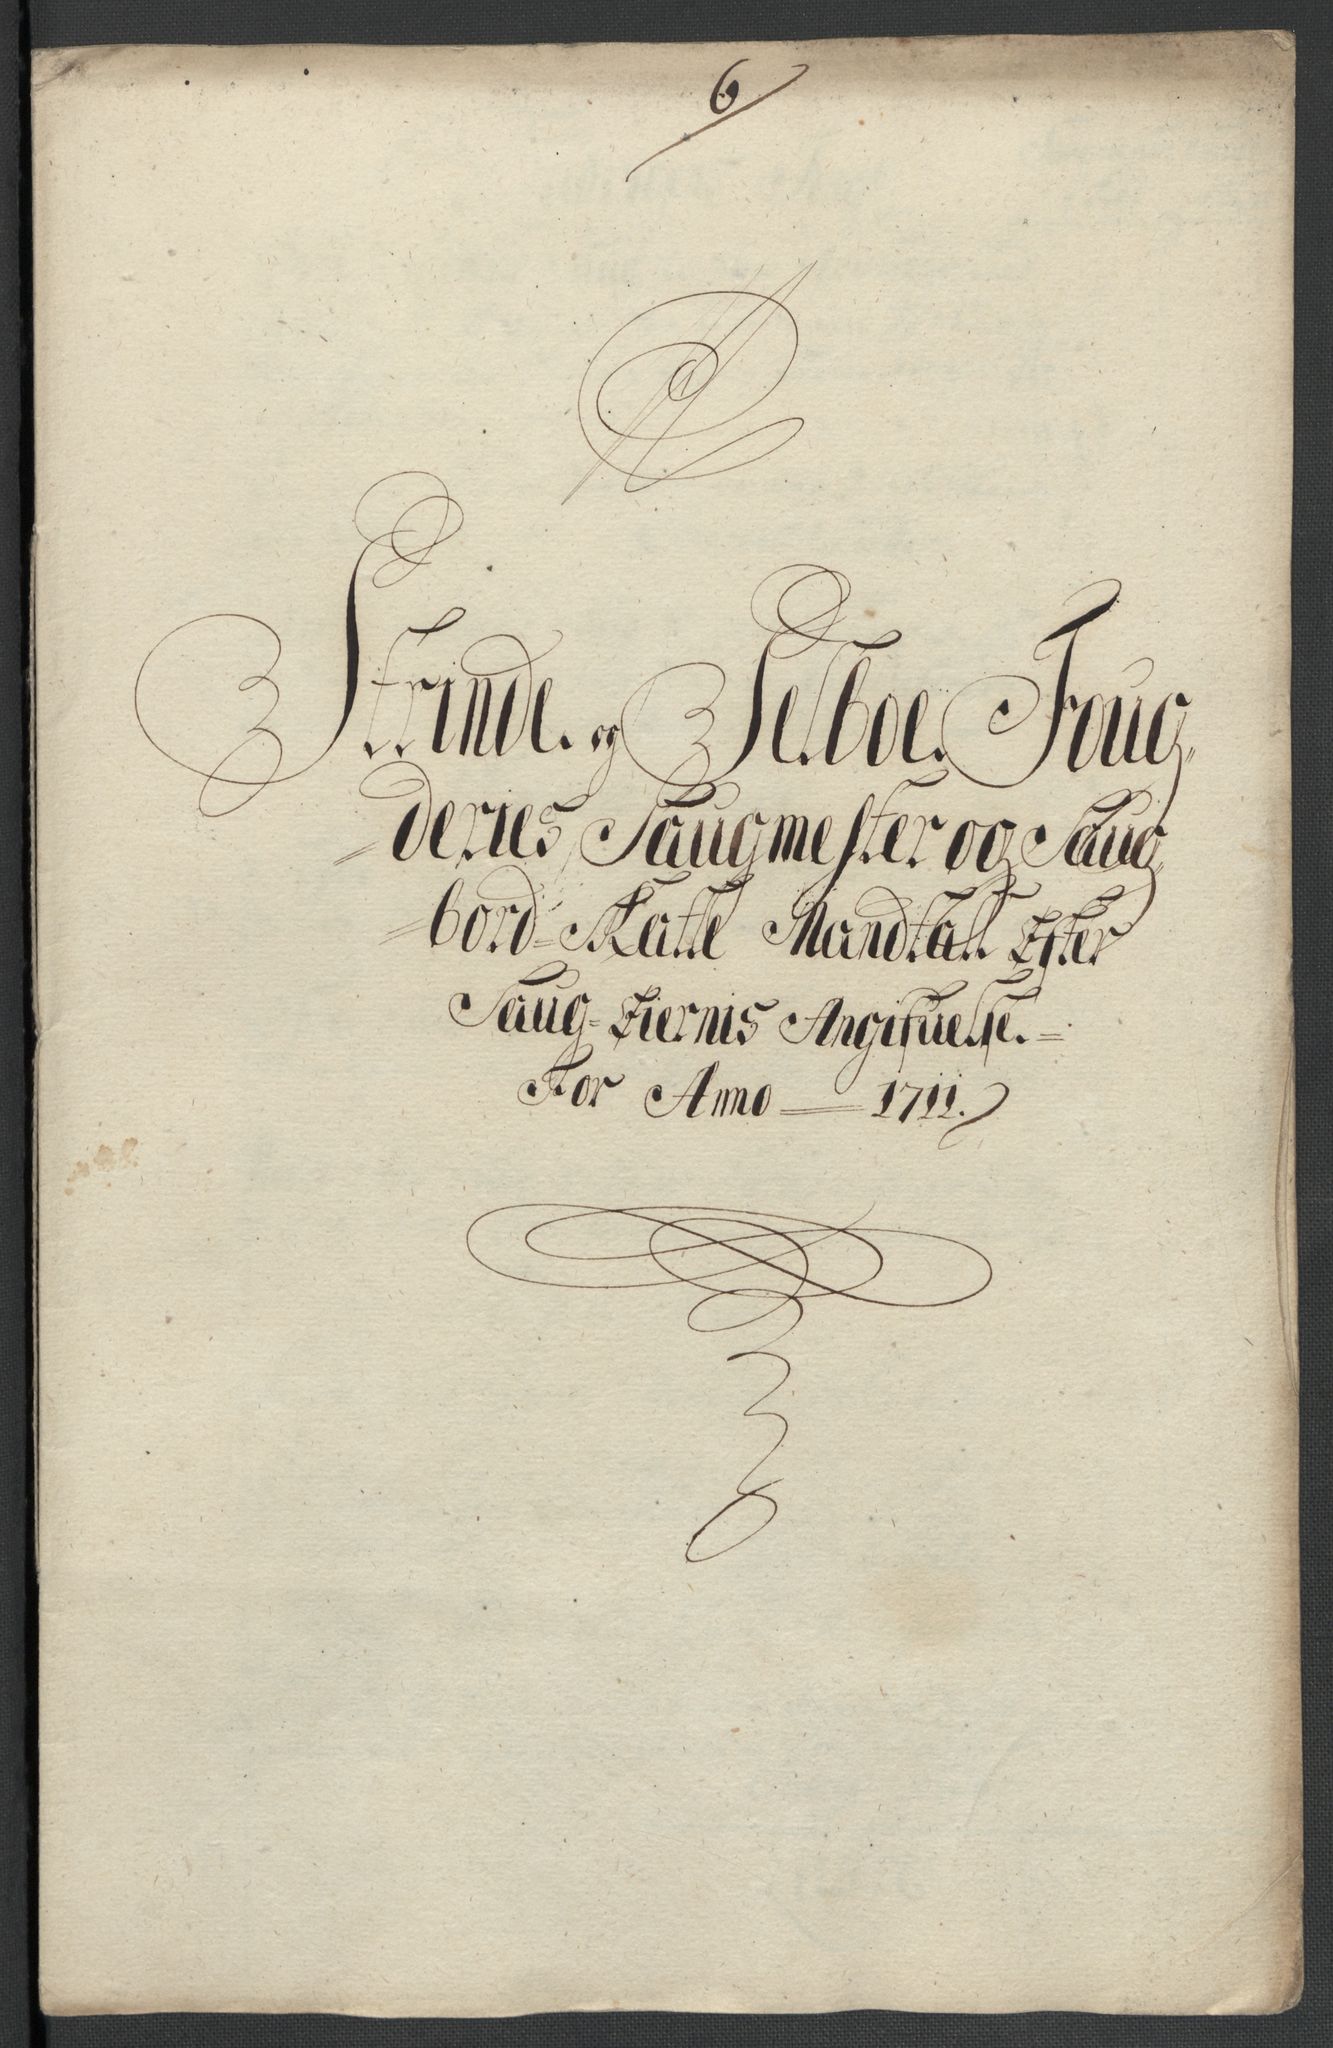 6
Strinde og Selboe Foug-
=deries Saugmester og Saug-
=bord=Skatte Mandtall Efter
Saug=Eiernis Angifuelse.=
For Anno — 1711.